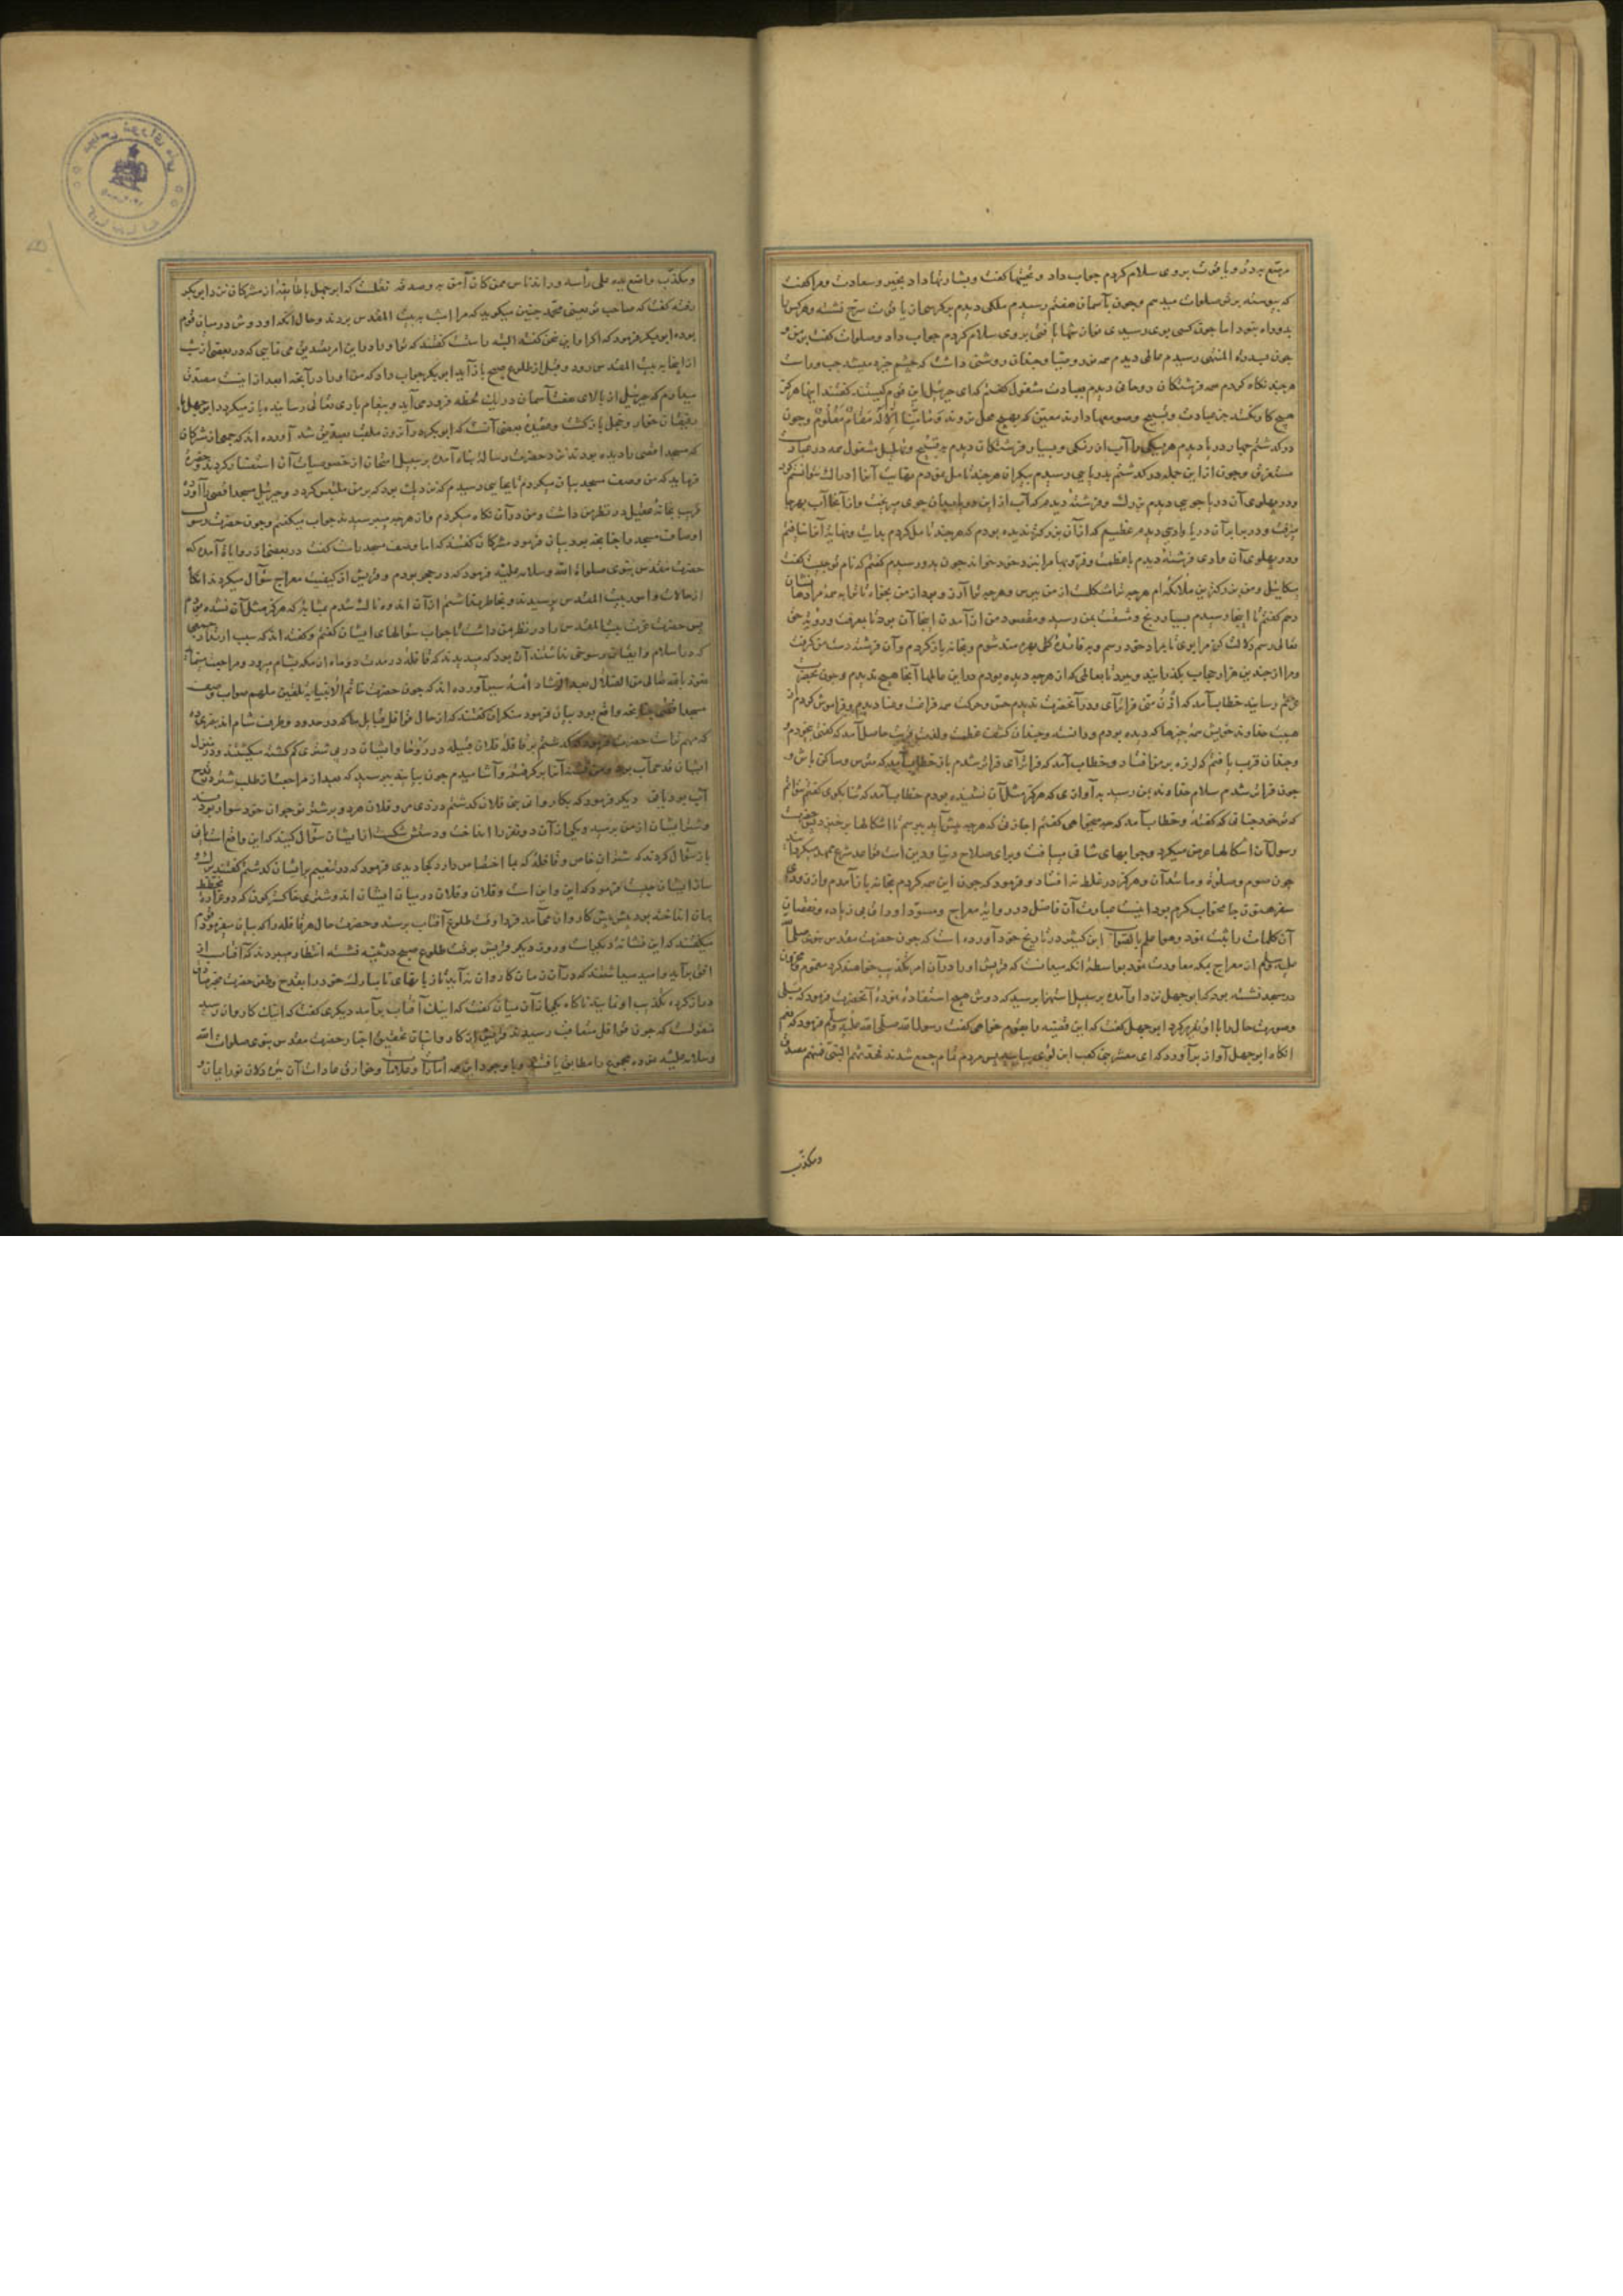 مرصّع بدرّ و یاقوت بر وی سلام کردم جواب داد و تحیّتها گفت و بشارتها داد بخیر و سعادت و مرا گفت
که پیوسته بر تو صلوات میدهم و چون بآسمان هفتم رسیدم ملکی دیدم بر کرسی از یاقوت سرخ نشسته و هرکس را
بدو راه نبود اما چون کسی بوی رسیدی
چون بسدرة المنتهی رسیدم عالمی دیدم همه نور و ضیا و چندان روشنی داشت که چشم خیره میشد چپ و راست
هرچند نگاه کردم همه فرشتگان روحانی دیدم بعبادت مشغول گفتم که ای جبرئیل این قوم کیستند گفتند اینها هرگز
هیچ کار نکنند جز عبادت و تسبیح و صومعها دارند معیّن که بهیچ محل نروند وَمَا مِنَّا اِلَّا لَهُ مَقَامٌ مَعْلُومٌ و چون
درگذشتم چهار دریا دیدم هر یکی را آب از رنگی و بسیار فرشتگان دیدم به تسبیح و تهلیل مشغول همه در عبادت
مستغرق و چون از این جمله درگذشتم بدریایی رسیدم بیکران هرچند تأمل نمودم نهایت آنرا ادراک نتوانستم کرد
و در پهلوی آن دریا جویی دیدم بزرگ و فرشته دیدم که آب از این دریا بدان جوی میریخت و از آنجا آب بهرجا
میرفت و در برابر آن دریا وادی دیدم عظیم که از آن بزرگتر ندیده بودم که هرچند تأمل کردم بدایت و نهایت آنرا نیافتم
و در پهلوی آن وادی فرشته دیدم با عظمت و فرّ و بها مرا بنزد خود خواند چون بدو رسیدم گفتم که نام تو چیست گفت
میکائیل و من بزرکترین ملائکه‌ام هرچه ترا مشکلست از من بپرس و هرچه ترا آرزوست از من بخواه تا ترا به همه مرادها نشان
دهم گفتم تا اینجا رسیدم بسیار رنج و مشقّت بمن رسید و مقصود من از آمدن اینجا آن بود تا بمعرفت و رؤیت حق
تعالی رسم دلالت کن مرا بوی تا بمراد خود رسم و به فایدهٔ کلی بهره‌مند شوم و بخانه بازگردم و آن فرشته دست من گرفت
و مرا از چندین هزار حجاب بگذرانید و ببرد تا بعالمی که از هرچه دیده بودم در این عالمها آنجا هیچ ندیدم و چون بحضرت
عزّتم رسانید خطاب آمد که اُدْنُ منّی فراتر آی و در آنحضرت ندیدم حسّ و حرکت همه فراغت و غنا دیدم و فراموش کردم از
هیبت خداوند خویش همه چیزها که دیده بودم و دانسته و چندان کشف عظمت و لذت قربت حاصل آمد که گفتی بیخودم
و چندان قرب یافتم که لرزه بر من افتاد و خطاب آمد که فراتر آی فراتر شدم باز خطاب آمد که مترس و ساکن باش
چون فراتر شدم سلام خداوند بمن رسید به آوازی که هرگز مثل آن نشنیده بودم خطاب آمد که ثنا بگوی گفتم نتوانم
که تو خود چنانی که گفته و خطاب آمد که چه میخواهی گفتم اجازتی که هرچه پیش آید بپرسم تا اشکالها برخیزد
رسول آن اشکالها عرض میکرد و جوابهای شافی مییافت و برای صلاح دنیا و دین است قواعد شرع ممهّد میکرد
چون صوم و صلوة و مانند آن و هرگز در غلط نه افتاد و فرمود که چون این همه کردم بخانه باز آمدم
سفر هنوز جامهٔ خواب گرم بود اینست عبارت آن فاضل در روایت معراج و مسوّد اوراق بی زیاده و نقصان
آن کلمات را ثبت نمود و هو اعلم بالصّواب ابن کثیر در تاریخ خود آورده است که چون حضرت مقدّس نبوی صلی الله
علیه و سلم از معراج بمکه معاودت نمود بواسطهٔ آنکه میدانست که قریش او را در آن امر تکذیب خواهند کرد مغموم و محزون
در مسجد نشسته بود که ابو جهل نزد او آمده بر سبیل استهزا پرسید که دوش هیچ استفادهٔ نمودهٔ آنحضرت فرمود که بلی
و صورت حال را با او تقریر کرد ابو جهل گفت که این قضیّه را بقوم خواهی گفت رسول الله صلّی الله علیه و سلّم فرمود که نعم
آنگاه ابو جهل آواز برآورد که ای معشر بنی کعب ابن لؤی بیایید پس مردم تمام جمع شدند فحدّثهم النّبی فمنهم مصدّق
ومکذّب
ومکذّب واضع یده علی رأسه و
رفته گفت که صاحب تو یعنی محمّد چنین میگوید که مرا امشب به بیت المقدس بردند و حال آنکه او دوش در میان قوم
بوده ابو بکر فرمود که اگر او این سخن گفته البته راست گفتند که تو او را در این امر تصدیق می نمایی که در بعضی از شب
از اینجا به بیت المقدس رود و قبل از طلوع صبح باز آید ابو بکر جواب داد که من او را در آنچه ابعد از اینست مصدّق
میدارم که جبرئیل از بالای هفت آسمان در یک لحظه فرود می‌آید و پیغام باری تعالی رسانیده باز میگردد ابو جهل با
رفیقان خوار و خجل بازگشت و عقیدهٔ بعضی آنست که ابو بکر در آن روز ملقب بصدّیق شد آورده اند که جمعی از مشرکان
که مسجد اقصی را دیده بودند نزد حضرت رسالت پناه آمده بر سبیل امتحان از خصوصیات آن استفسار کردند حضرت
فرماید که من وصف مسجد بیان میکردم تا بجایی رسیدم که نزدیک بود که بر من ملتبس گردد و جبرئیل مسجد اقصی را آورد
قریب بخانهٔ عقیل در نظر من داشت و من در آن نگاه میکردم و از هرچه میپرسیدند جواب میگفتم و چون حضرت رسول
اوصاف مسجد را چنانچه بود بیان فرمود مشرکان گفتند که اما وصف مسجد راست گفت در بعضی از روایات آمده که
حضرت مقدّس نبوی صلوات الله و سلامه علیه فرمود که در حجر بودم و قریش از کیفیت معراج سؤال میکردند آنگاه
از حالات و اسرار بیت المقدس پرسیدند و بخاطر نداشتم از آن اندوهناک شدم بمثابهٔ که هرگز مثل آن نشده بودم
پس حضرت عزّت بیت المقدس را در نظر من داشت تا جواب سؤالهای ایشان گفتم و گفته اند که سبب ارتداد جمعی
که در اسلام و ایمان رسوخی نداشتند آن بود که میدیدند که قافله در مدت دو ماه از مکه بشام میرود و مراجعت مینماید
نعوذ بالله تعالی من الضلال بعد الرشاد آورده اند که چون حضرت خاتم الانبیا به تلقین ملهم صواب وصف
مسجد اقصی چنانچه واقع بود بیان فرمود منکران گفتند که از حال قوافل قبایل ما که در حدود و طریق شام اند
که مهم ماست حضرت فرمود که گذشتم بر قافلهٔ فلان قبیله در روحا و ایشان در پی شتری گم گشته میگشتند و در منزل
ایشان قدحی آب بود و من تشنه آنرا برگرفتم و آشامیدم چون بیایند بپرسید که بعد از مراجعت از طلب شتر در قدح
آب بود یا نی دیگر فرمود که بکاروان بنی فلان گذشتم در ذی مرّ و فلان هر دو بر شتر نوجوان خود سوار بودند
و شتر ایشان از من برمید و یکی از آن دو نفر را انداخت و دستش شکست از ایشان سؤال کنید که این واقع است یا نی
باز سؤال کردند که شتران خاص و قافلهٔ که بما اختصاص دارد کجا دیدی فرمود که در تنعیم بر ایشان گذشتم گفتند
نشان ایشان چیست فرمود که این و این است و فلان و فلان در میان ایشان اند و شتری خاکستر گون که دو غرارهٔ مخطّط
بدان انداخته بود پیش پیش کاروان می‌آمد فردا وقت طلوع آفتاب برسند و حضرت حال هر قافله را که بیان میفرمود
میگفتند که این نشانهٔ دیگر است و روز دیگر قریش بوقت طلوع صبح در ثنیّه نشسته انتظار میبردند که آفتاب از
افق برآید و امید میداشتند که در آن زمان کاروان نیاید تا زبانهای نامبارک خود را بقدح و طعن حضرت
دراز کرده تکذیب او نمایند ناگاه یکی از آن میان گفت که اینک آفتاب برآمد دیگری گفت که اینک کاروان رسید
منقولست که چون قوافل متعاقب رسیدند قریش از کاروانیان تحقیق اخبار حضرت مقدّس نبوی صلوات الله
وسلامه علیه نموده مجموع را مطابق یافتند و با وجود این همه امارات و علامات و خوارق عادات آن تیره دلان نور ایمان